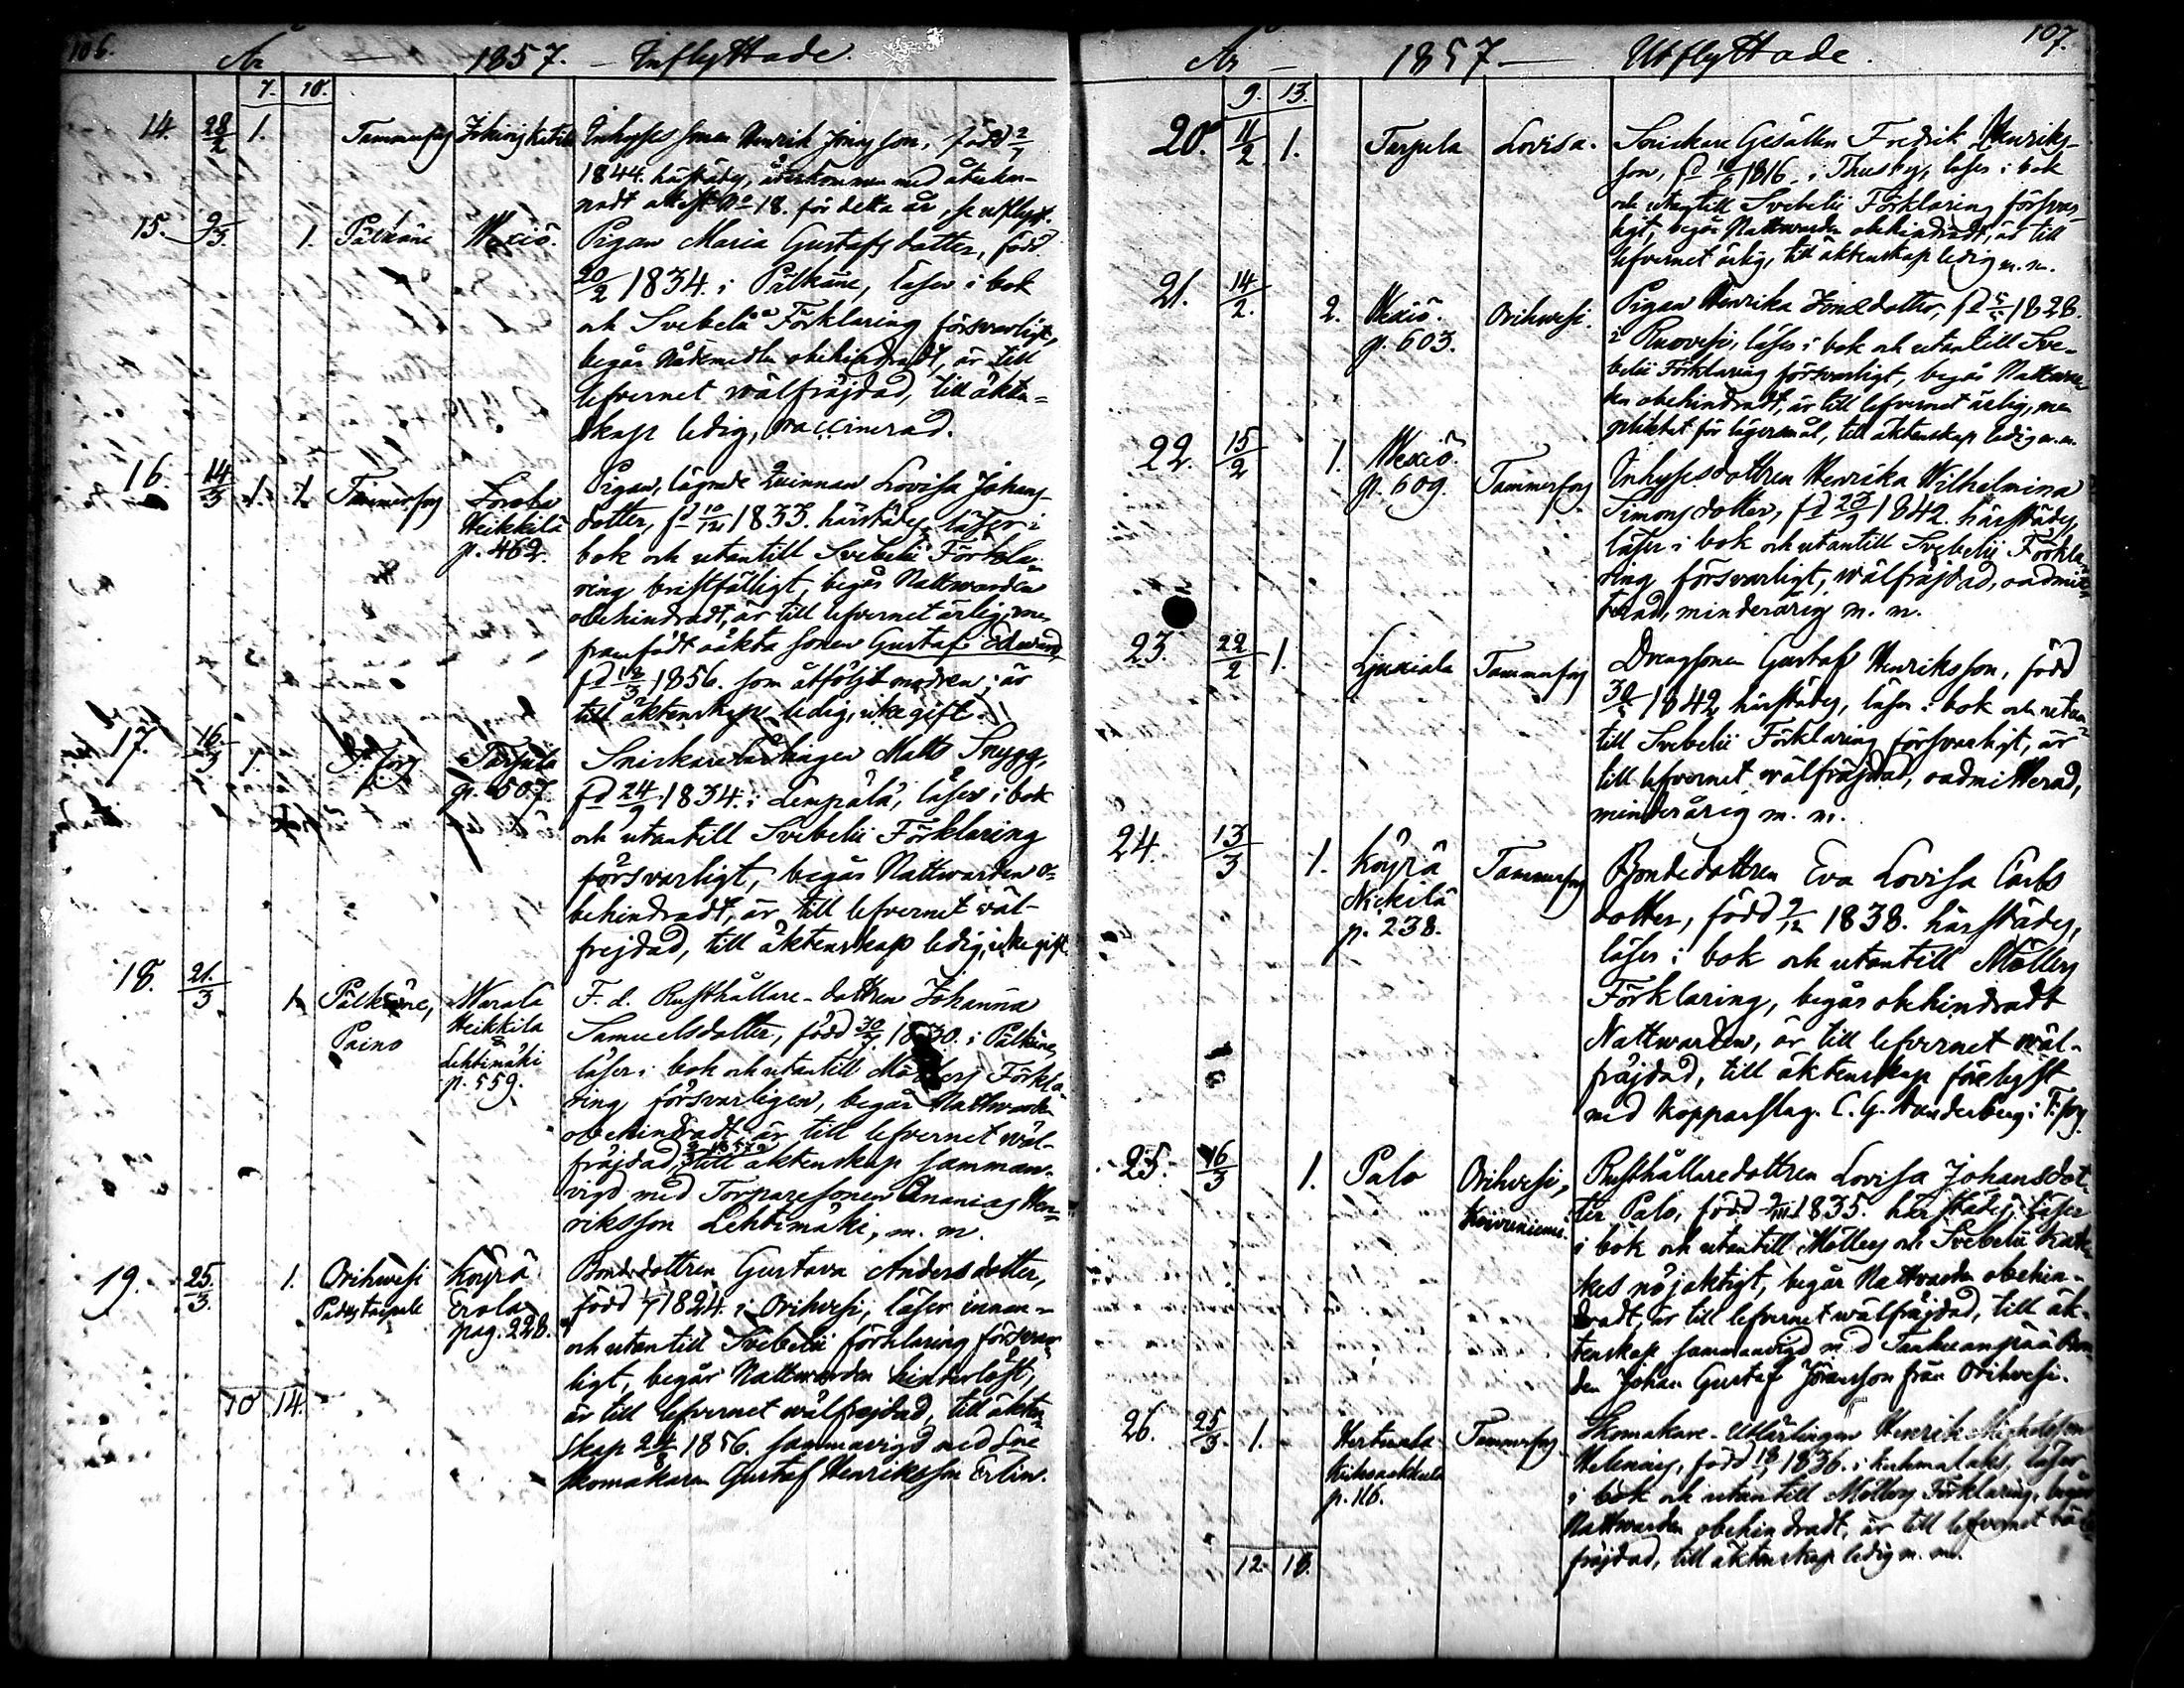 106.
År — 1857. — Inflyttade.
7. 10.
14. 28/2 1. Tammerfors Inhyses sonen Henrik Jönsson, född 2/7
1844. härstädes, återkommen med återkem-
nadt attest No 18. för detta år, se utflytt.
15. 9/3. 1. Pälkäne Wexiö. Pigan Maria Gustafsdotter, född
20/2 1834. i Pälkäne, läser i bok
och Svebelii Förklaring försvarligt,
begår Nådemedlen obehindradt, är till
lefvernet wälfräjdad, till äkten=
skap ledig, vaccinerad.
16. 14/3 1. 1. Tammerfors Heikkilä p. 462. Pigan, lägrade Quinnan Lovisa Johans
dotter, fd 10/12 1833. härstädes, läser i
bok och utantill Svebelii Förkla-
ring bristfälligt, begår Nattwarden
obehindradt, är till lefvernet ärlig, men
framfödt oäkta sonen Gustaf Edward
fd 18/3 1856. som åtföljt modren; är
till äktenskap ledig, icke gift.
17. 16/3 1. T:fors Tarpila p. 507. Snickare Lärlingen Matts Snygg,
fd 24/9 1834. i Lempälä, läser i bok
och utantill Svebelii Förklaring
försvarligt, begår Nattwarden o=
behindradt, är till lefvernet wäl-
frejdad, till äktenskap ledig, icke gift.
18. 21/3 1. Pälkäne, Paino Warala Heikkila Lehtimäki p. 559. F. d. Rusthållare-dottren Johanna
Samuelsdotter, född 30/7 1830. i Pälkäne,
läser i bok och utantill Möllers Förkla-
ring försvarligen, begår Nattwarden
obehindradt, är till lefvernet wäl-
fräjdad, till äktenskap samman-
vigd med Torparesonen Ananias Hen-
riksson Lehtimäki, m. m.
19. 25/3. 1. Orihwesi Köyrä Erola pag. 228. Bondedottren Gustava Andersdotter,
född 1/7 1824. i Orihvesi, läser innan-
och utantill Svebelii förklaring försvar-
ligt, begår Nattwarden hinderlöst,
är till lefvernet wälfrejdad, till äkten-
skap 24/8 1856. sammanvigd med Sne
skomakaren Gustaf Henriksson Erlin.
10 14.
107.
År — 1857 — Utflyttade.
9. 13.
20. 11/2 1. Tarpila Lovisa. Snickare Gesällen Fredrik Henriks-
son, fd 1816. i Thusby, läser i bok
och utantill Svebelii Förklaring försvar-
ligt, begår Nattwarden obehindradt, är till
lefvernet ärlig, till äktenskap ledig m. m.
21. 14/2. 2. Wexiö. p. 603. Orihwesi. Pigan Henrika Jönsdotter, fd 1828.
i Ruovesi, läser i bok och utantill Sve-
belii Förklaring försvarligt, begår Nattwar-
den obehindradt, är till lefvernet ärlig, men
pliktat för lägersmål, till äktenskap ledig m. m.
22. 15/2 1. Wexiö. p. 609. Tammerfors Inhysesdottren Henrika Wilhelmina
Simonsdotter, fd 23/9 1842. härstädes,
läser i bok och utantill Svebelii Förkla-
ring försvarligt, wälfräjdad, oadmit-
terad, minderårig m. m.
23. 22/2 1. Liuxiala Tammerfors Drengsonen Gustaf Henriksson, född
1842 härstädes, läser i bok och utan-
till Svebelii Förklaring försvarligt, är
till lefvernet wälfräjdad, oadmitterad,
minderårig m. m.
24. 13/3 1. Köyrä Nickilä p. 238. Tammerfors Bondedottren Eva Lovisa Carls
dotter, född 9/12 1838. härstädes,
läser i bok och utantill Möllers
Förklaring, begår obehindradt
Nattwarden, är till lefvernet wäl-
fräjdad, till äktenskap förelyst
med kopparslag. C. G. Wanderberg i T:fors.
25. 16/3 1. Palo Orihvesi, Koivuniemi. Rusthållaredottren Lovisa Johansdot-
ter Palo, född 1835. härstädes, läser
i bok och utantill Möllers och Svebelii Kate-
kes nöjaktigt, begår Nattvarden obehin-
dradt, är till lefvernet wälfräjdad, till äk-
tenskap sammanvigd med Bon-
den Johan Gustaf Jöransson från Orihvesi.
26. 25/3. 1. p. 116. Tammerfors Skomakare-Utlärlingen Henrik Michelsson
Helenius, född 1836. i Kuhmalahti, läser
i bok och utantill Möllers Förklaring, begår
Nattwarden obehindradt, är till lefvernet wäl-
fräjdad, till äktenskap ledig m. m.
12. 18.